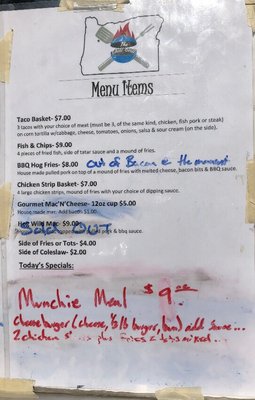 the
Menu Items
Taco Basket- $7.00
3 tacos with your choice of meat (must be 3, of the same kind, chicken, fish pork or steak)
on corn tortilla w/cabbage, cheese, tomatoes, onions, salsa & sour cream (on the side).
Fish & Chips- $9.00
4 pieces of fried fish, side of tatar sauce and a mound of fries.
BBQ Hog Fries- $8.00 Out of Bacon @ the moment
House made pulled pork on top of a mound of fries with melted cheese, bacon bits & BBQ sauce.
Chicken Strip Basket- $7.00
4 large chicken strips, mound of fries with your choice of dipping sauce.
Gourmet Mac'N'Cheese- 12oz cup $5.00
House made mac. Add bacon $1.00
Hot Wild Mac- $9.00
Sold OUT
pork & bbq sauce.
Side of Fries or Tots- $4.00
Side of Coleslaw- $2.00
Today's Specials:
Munchie Meal $9.00
cheeseburger (cheese, 1/3 lb burger, bun) add
2 chicken plus Fries